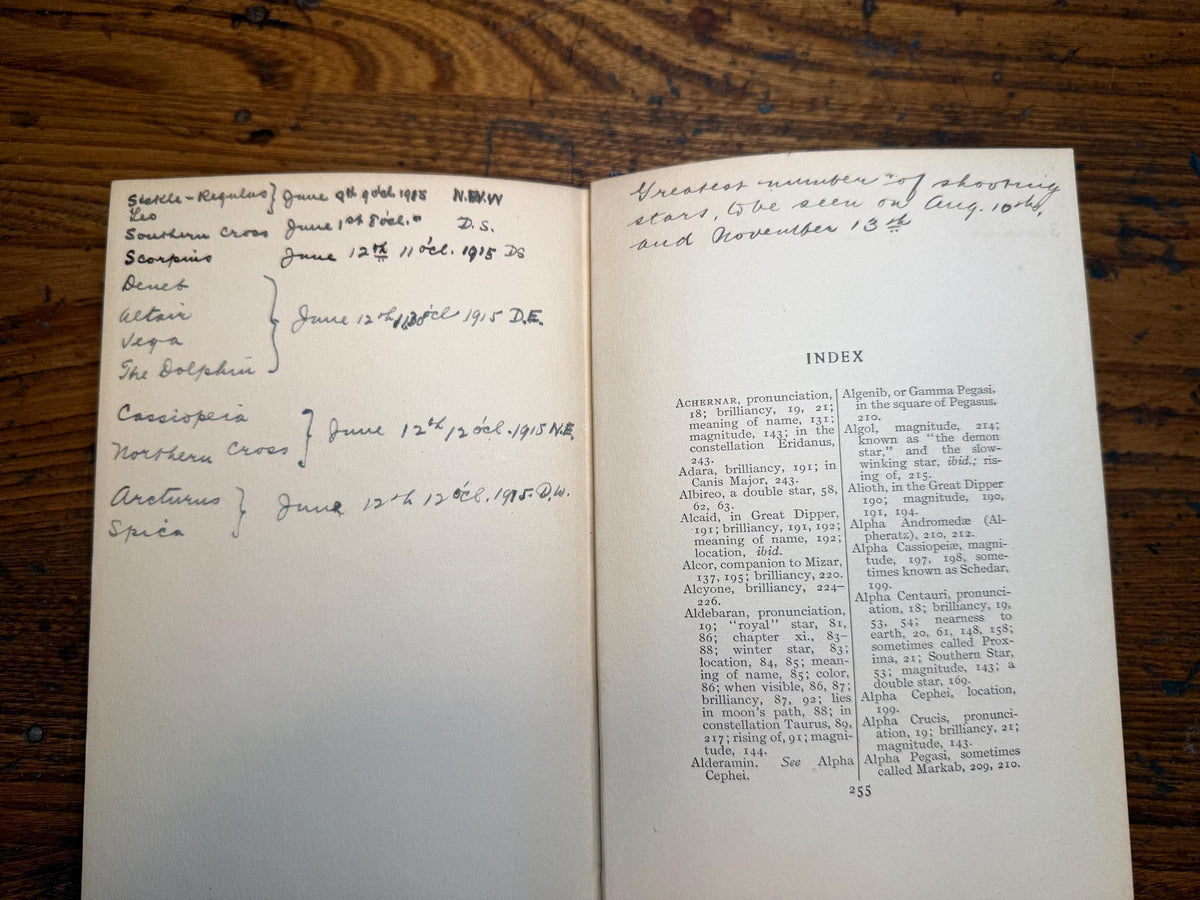 Sickle-Regulus } June 9th 9 ócl 1915 N.W.W
Leo
Southern Cross June 1st 8 ócl. " D.S.
Scorpius June 12th 11 ócl. 1915 DS
Deneb
Altair
Vega
The Dolphin } June 12th ócl 1915 D.E.
Cassiopeia
Northern Cross } June 12th 12 ócl. 1915 N.E.
Arcturus
Spica } June 12th 12 ócl. 1915. D.W.
Greatest number of shooting
stars, to be seen on Aug. 10ths,
and November 13th
INDEX
Achernar, pronunciation,
18; brilliancy, 19, 21;
meaning of name, 131;
magnitude, 143; in the
constellation Eridanus,
243.
Adara, brilliancy, 191; in
Canis Major, 243.
Albireo, a double star, 58,
62, 63.
Alcaid, in Great Dipper,
191; brilliancy, 191, 192;
meaning of name, 192;
location, ibid.
Alcor, companion to Mizar,
137, 195; brilliancy, 220.
Alcyone, brilliancy, 224–
226.
Aldebaran, pronunciation,
19; "royal" star, 81,
86; chapter xi., 83–
88; winter star, 83;
location, 84, 85; mean-
ing of name, 85; color,
86; when visible, 86, 87;
brilliancy, 87, 92; lies
in moon's path, 88; in
constellation Taurus, 89,
217; rising of, 91; magni-
tude, 144.
Alderamin. See Alpha
Cephei.
Algenib, or Gamma Pegasi.
in the square of Pegasus,
210.
Algol, magnitude, 214;
known as "the demon
star," and the slow-
winking star, ibid.; ris-
ing of, 215.
Alioth, in the Great Dipper
190; magnitude, 190,
191, 194.
Alpha Andromedæ (Al-
pheratz), 210, 212.
Alpha Cassiopeiæ, magni-
tude, 197, 198, some-
times known as Schedar,
199.
Alpha Centauri, pronunci-
ation, 18; brilliancy, 19,
53, 54; nearness to
earth, 20, 61, 148, 158;
sometimes called Prox-
ima, 21; Southern Star,
53; magnitude, 143; a
double star, 169.
Alpha Cephei, location,
199.
Alpha Crucis, pronunci-
ation, 19; brilliancy, 21;
magnitude, 143.
Alpha Pegasi, sometimes
called Markab, 209, 210.
255